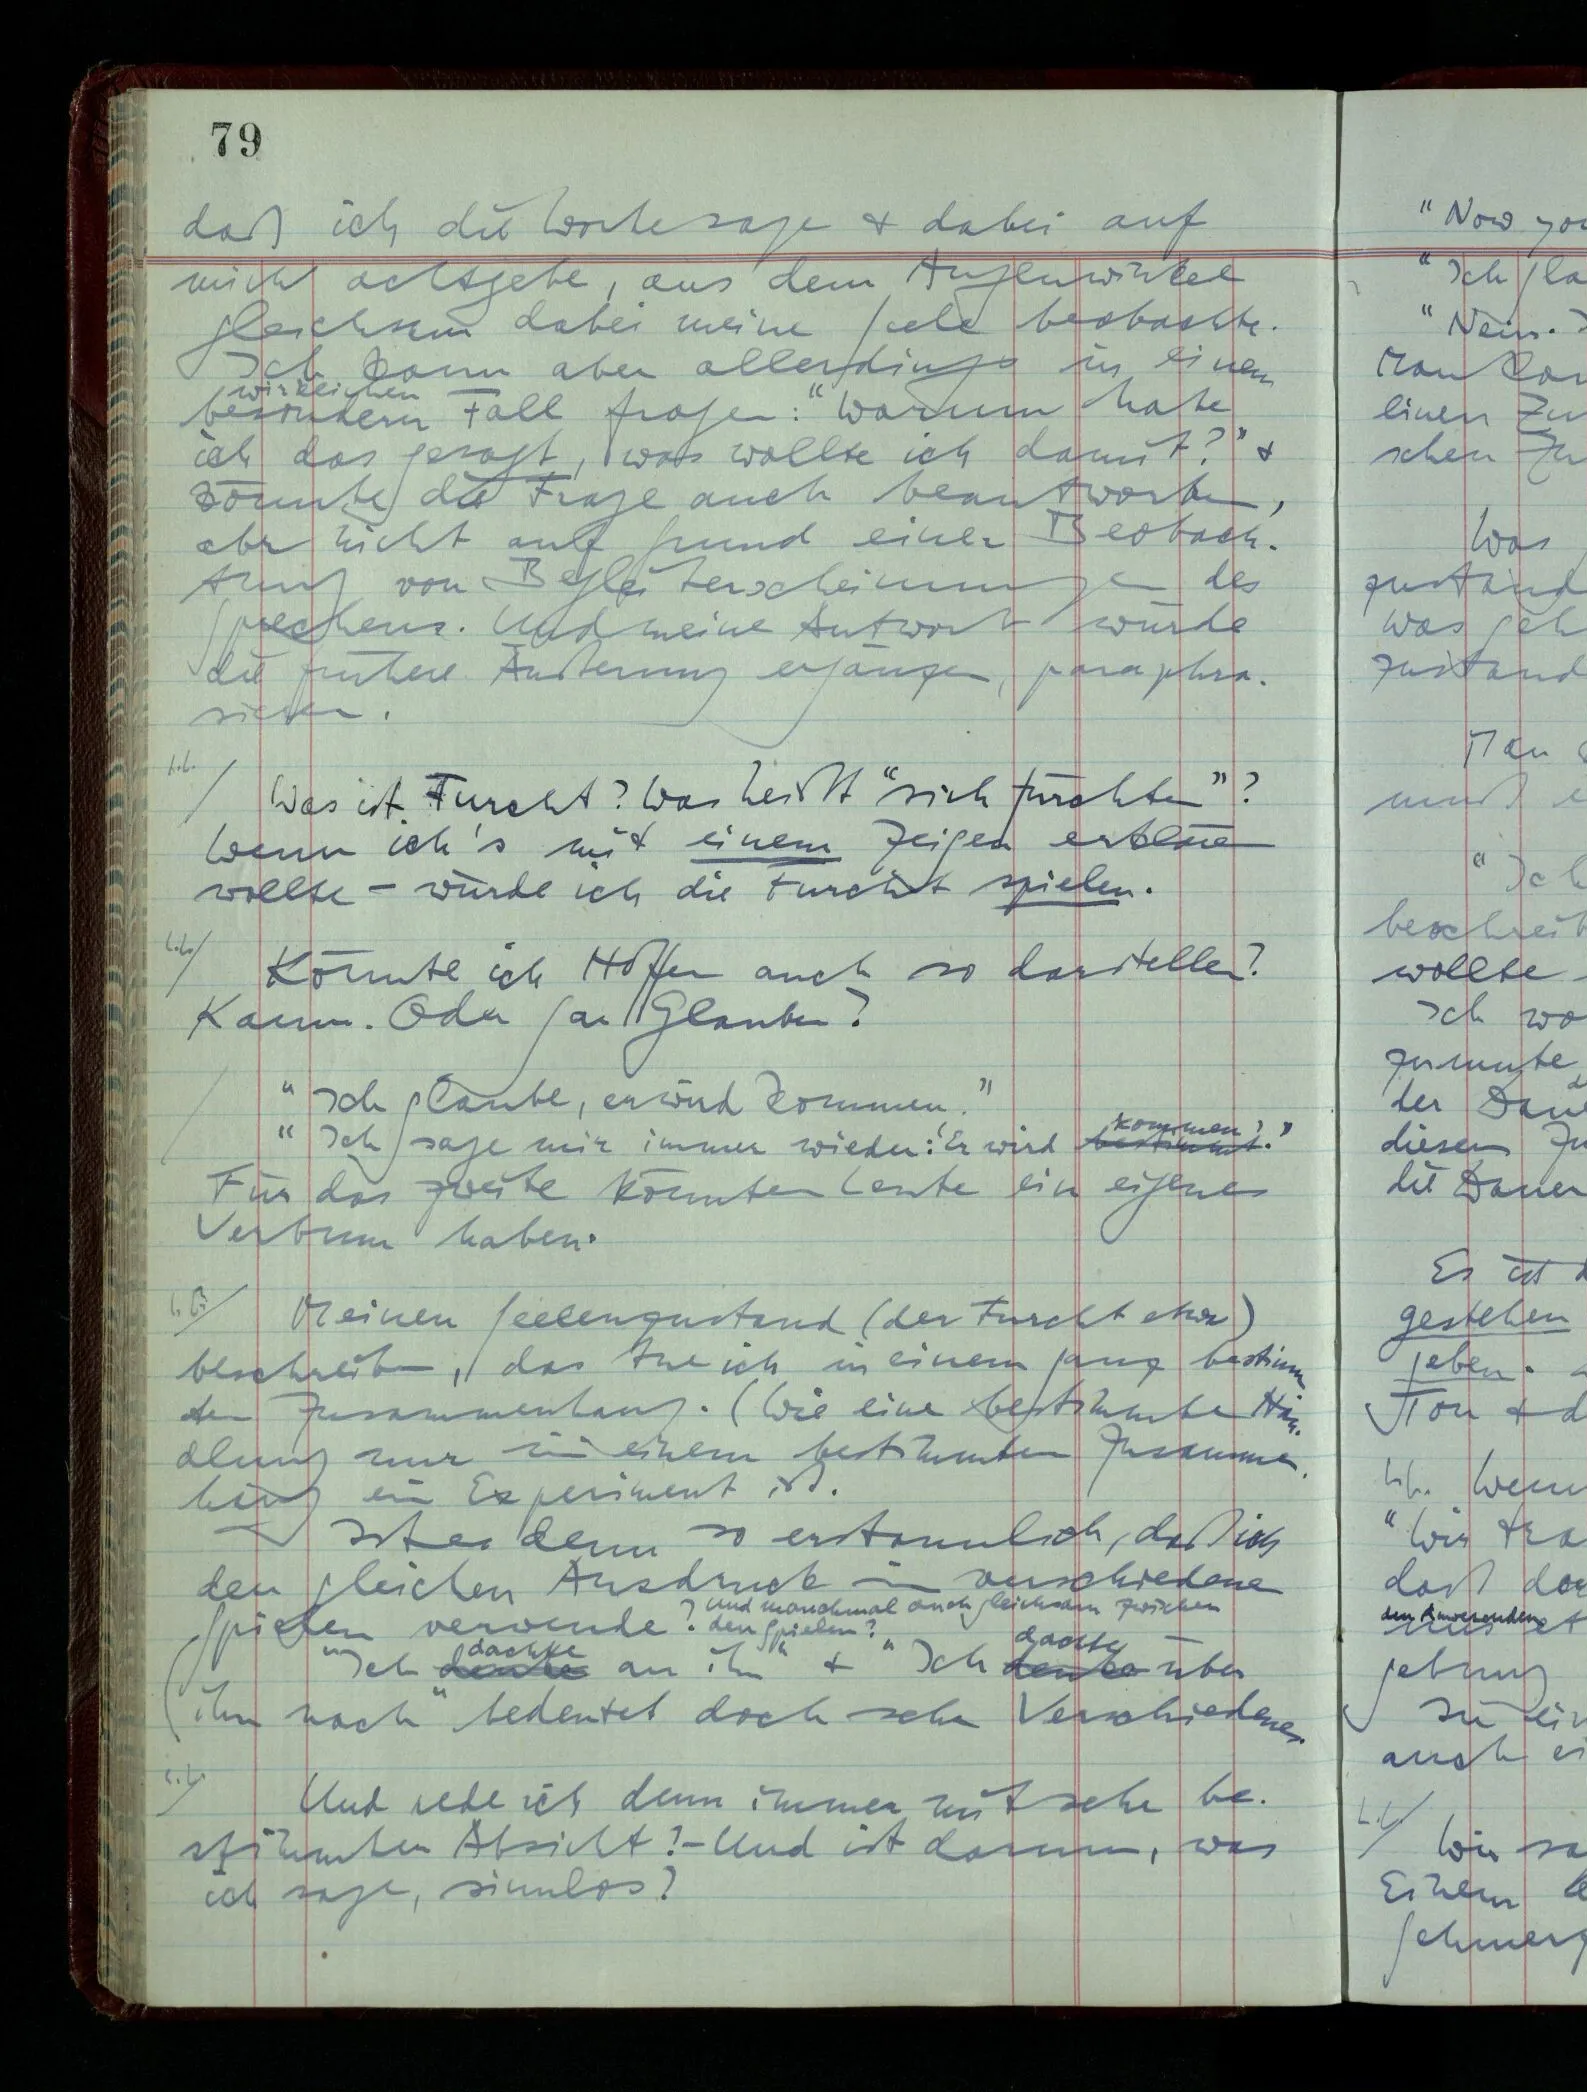 79
daß ich die Worte sage & dabei auf
mich achtgebe, aus dem Augenwinkel
gleichsam dabei meine Seele beobachte.
Ich kann aber allerdings in einem
wirklichen
besondern Fall fragen: "Warum habe
ich das gesagt, was wollte ich damit?" &
könnte die Frage auch beantworten,
aber nicht auf Grund einer Beobach-
tung von Begleiterscheinungen des
Sprechens. Und meine Antwort würde
die frühere Äußerung ergänzen, paraphra-
sieren.
/ Was ist Furcht? Was heißt "sich fürchten"?
Wenn ich's mit einem Zeigen erklären
wollte – würde ich die Furcht spielen.
/ Könnte ich Hoffen auch so darstellen?
Kaum. Oder gar Glauben?
/ "Ich glaube, er wird kommen."
kommen'
"Ich sage mir immer wieder: 'Er wird bestimmt."
Für das zweite könnten Leute ein eigenes
Verbum haben.
/ Meinen Seelenzustand (der Furcht etwa)
beschreiben, das tue ich in einem ganz bestimm
ten Zusammenhang. (Wie eine bestimmte Han-
dlung nur in einem bestimmten Zusammen-
hang ein Experiment ist.
Ist es denn so erstaunlich, daß ich
den gleichen Ausdruck in verschiedenen
Spielen verwende? Und manchmal auch gleichsam zwischen
den Spielen?
dachte dachte
( "Ich denke an ihn" & "Ich denke über
ihn nach" bedeutet doch sehr Verschiedenes.
/ Und rede ich denn immer mit sehr be-
stimmter Absicht? – Und ist darum, was
ich sage, sinnlos?
"Now you
"Ich gla
"Nein.
Man kan
einen Zu
schen Zu
Was
zustand
was geh
zustand
Man
muß
"Ich
beschreib
wollte
Ich wo
zumute
der Dau
diesem Zu
die Dauer
Es ist
gestehen
geben.
Ton & d
Wenn
"Wir tra
daß der
den Anwesenden
gebung
In ein
auch ei
/ Wir sa
Einem
Schmerz